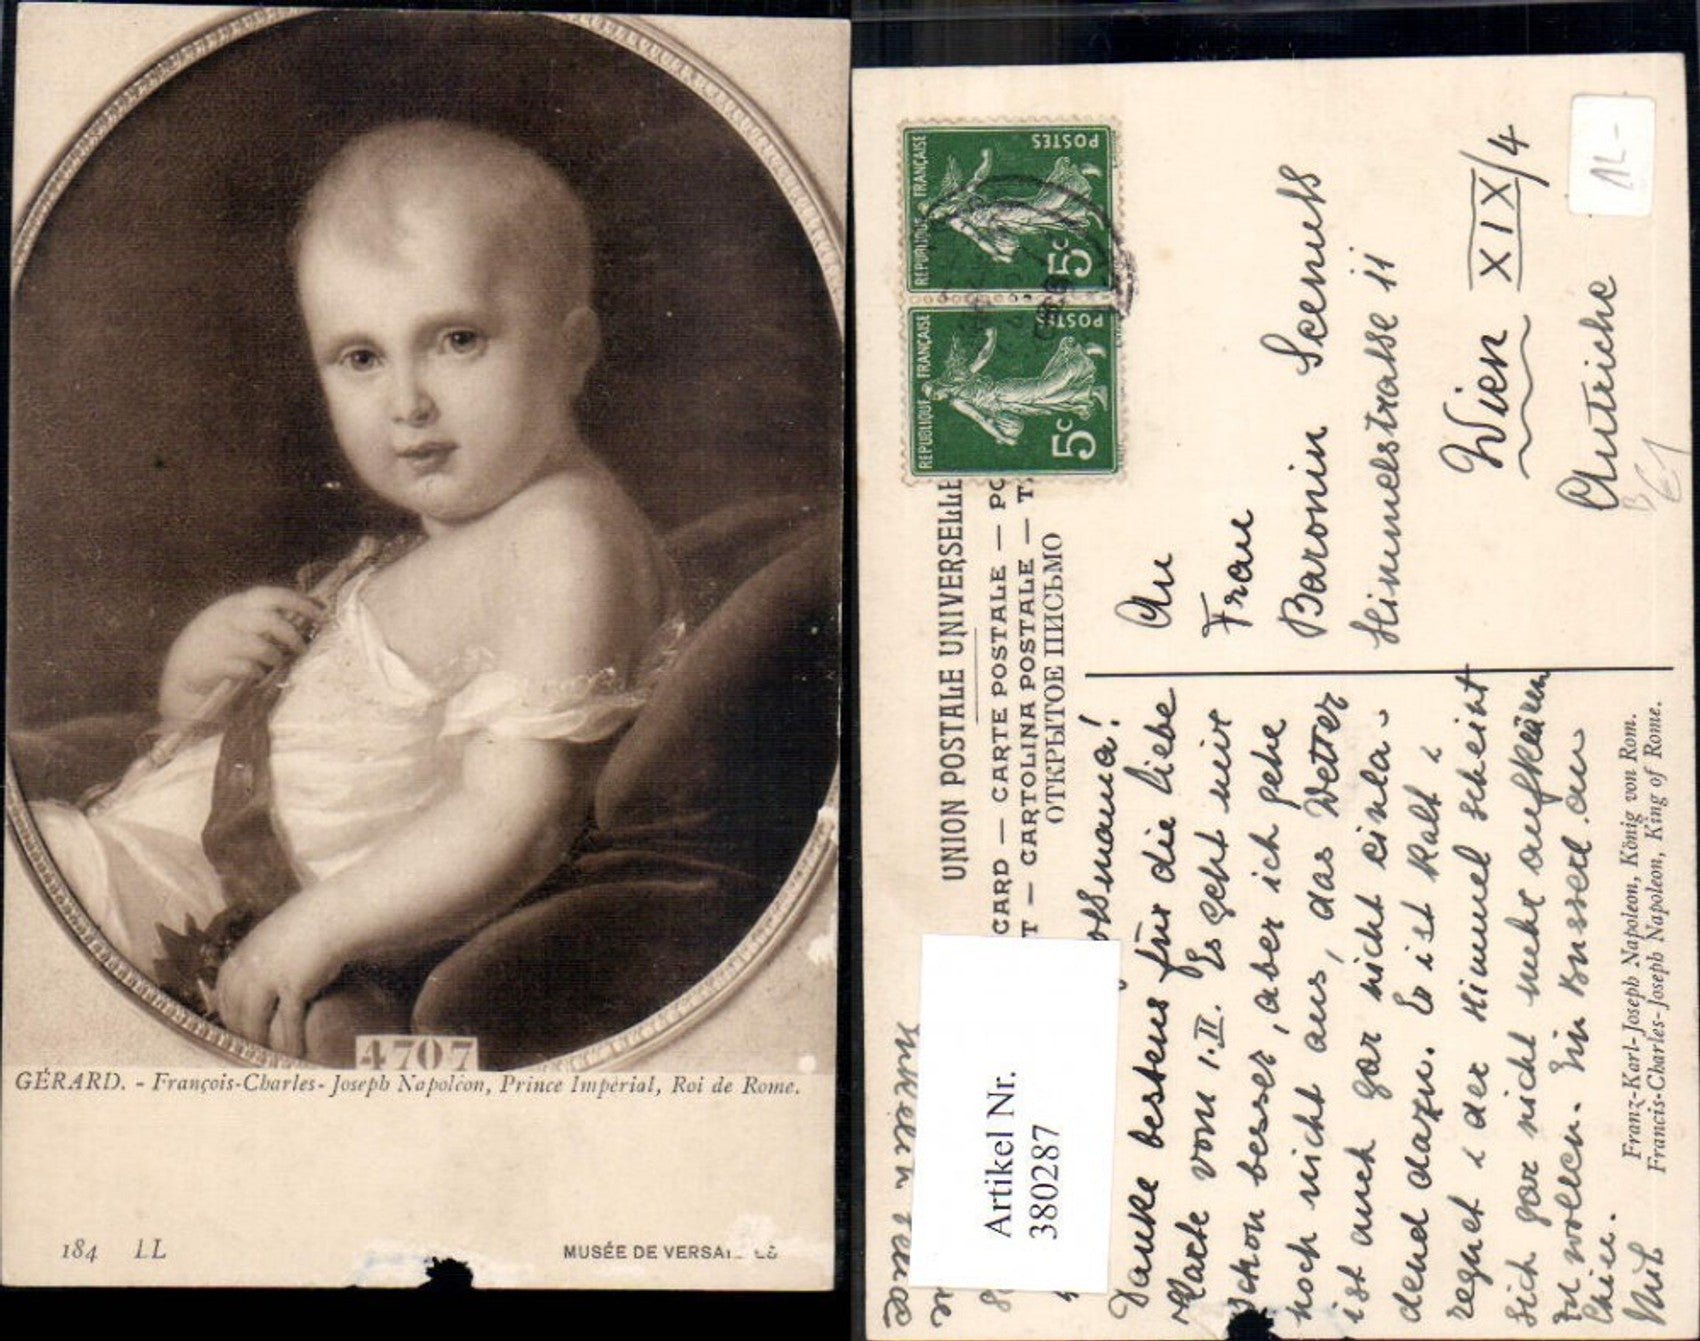 4707
GÉRARD. - François-Charles-Joseph Napoléon, Prince Impérial, Roi de Rome.
184 LL
MUSÉE DE VERSAI ES
REPUBLIQUE FRANÇAISE
POSTES
5c
REPUBLIQUE FRANÇAISE
POSTES
5c
UNION POSTALE UNIVERSELLE
CARD — CARTE POSTALE — PO
T — CARTOLINA POSTALE — T
ОТКРЫТОЕ ПИСЬМО
An
Frau
Baronin
Himmelstrasse 11
Wien XIX/4
Autriche
ossmama!
Danke bestens für die liebe
Karte vom 1.II. Es geht mir
schon besser, aber ich gehe
noch nicht aus, das Wetter
ist auch gar nicht einla-
dend dazu. Es ist kalt &
regnet & der Himmel scheint
sich gar nicht mehr aufklären
zu wollen. Ein Bussed an
Franz-Karl-Joseph Napoleon, König von Rom.
Francis-Charles-Joseph Napoleon, King of Rome.
Artikel Nr.
380287